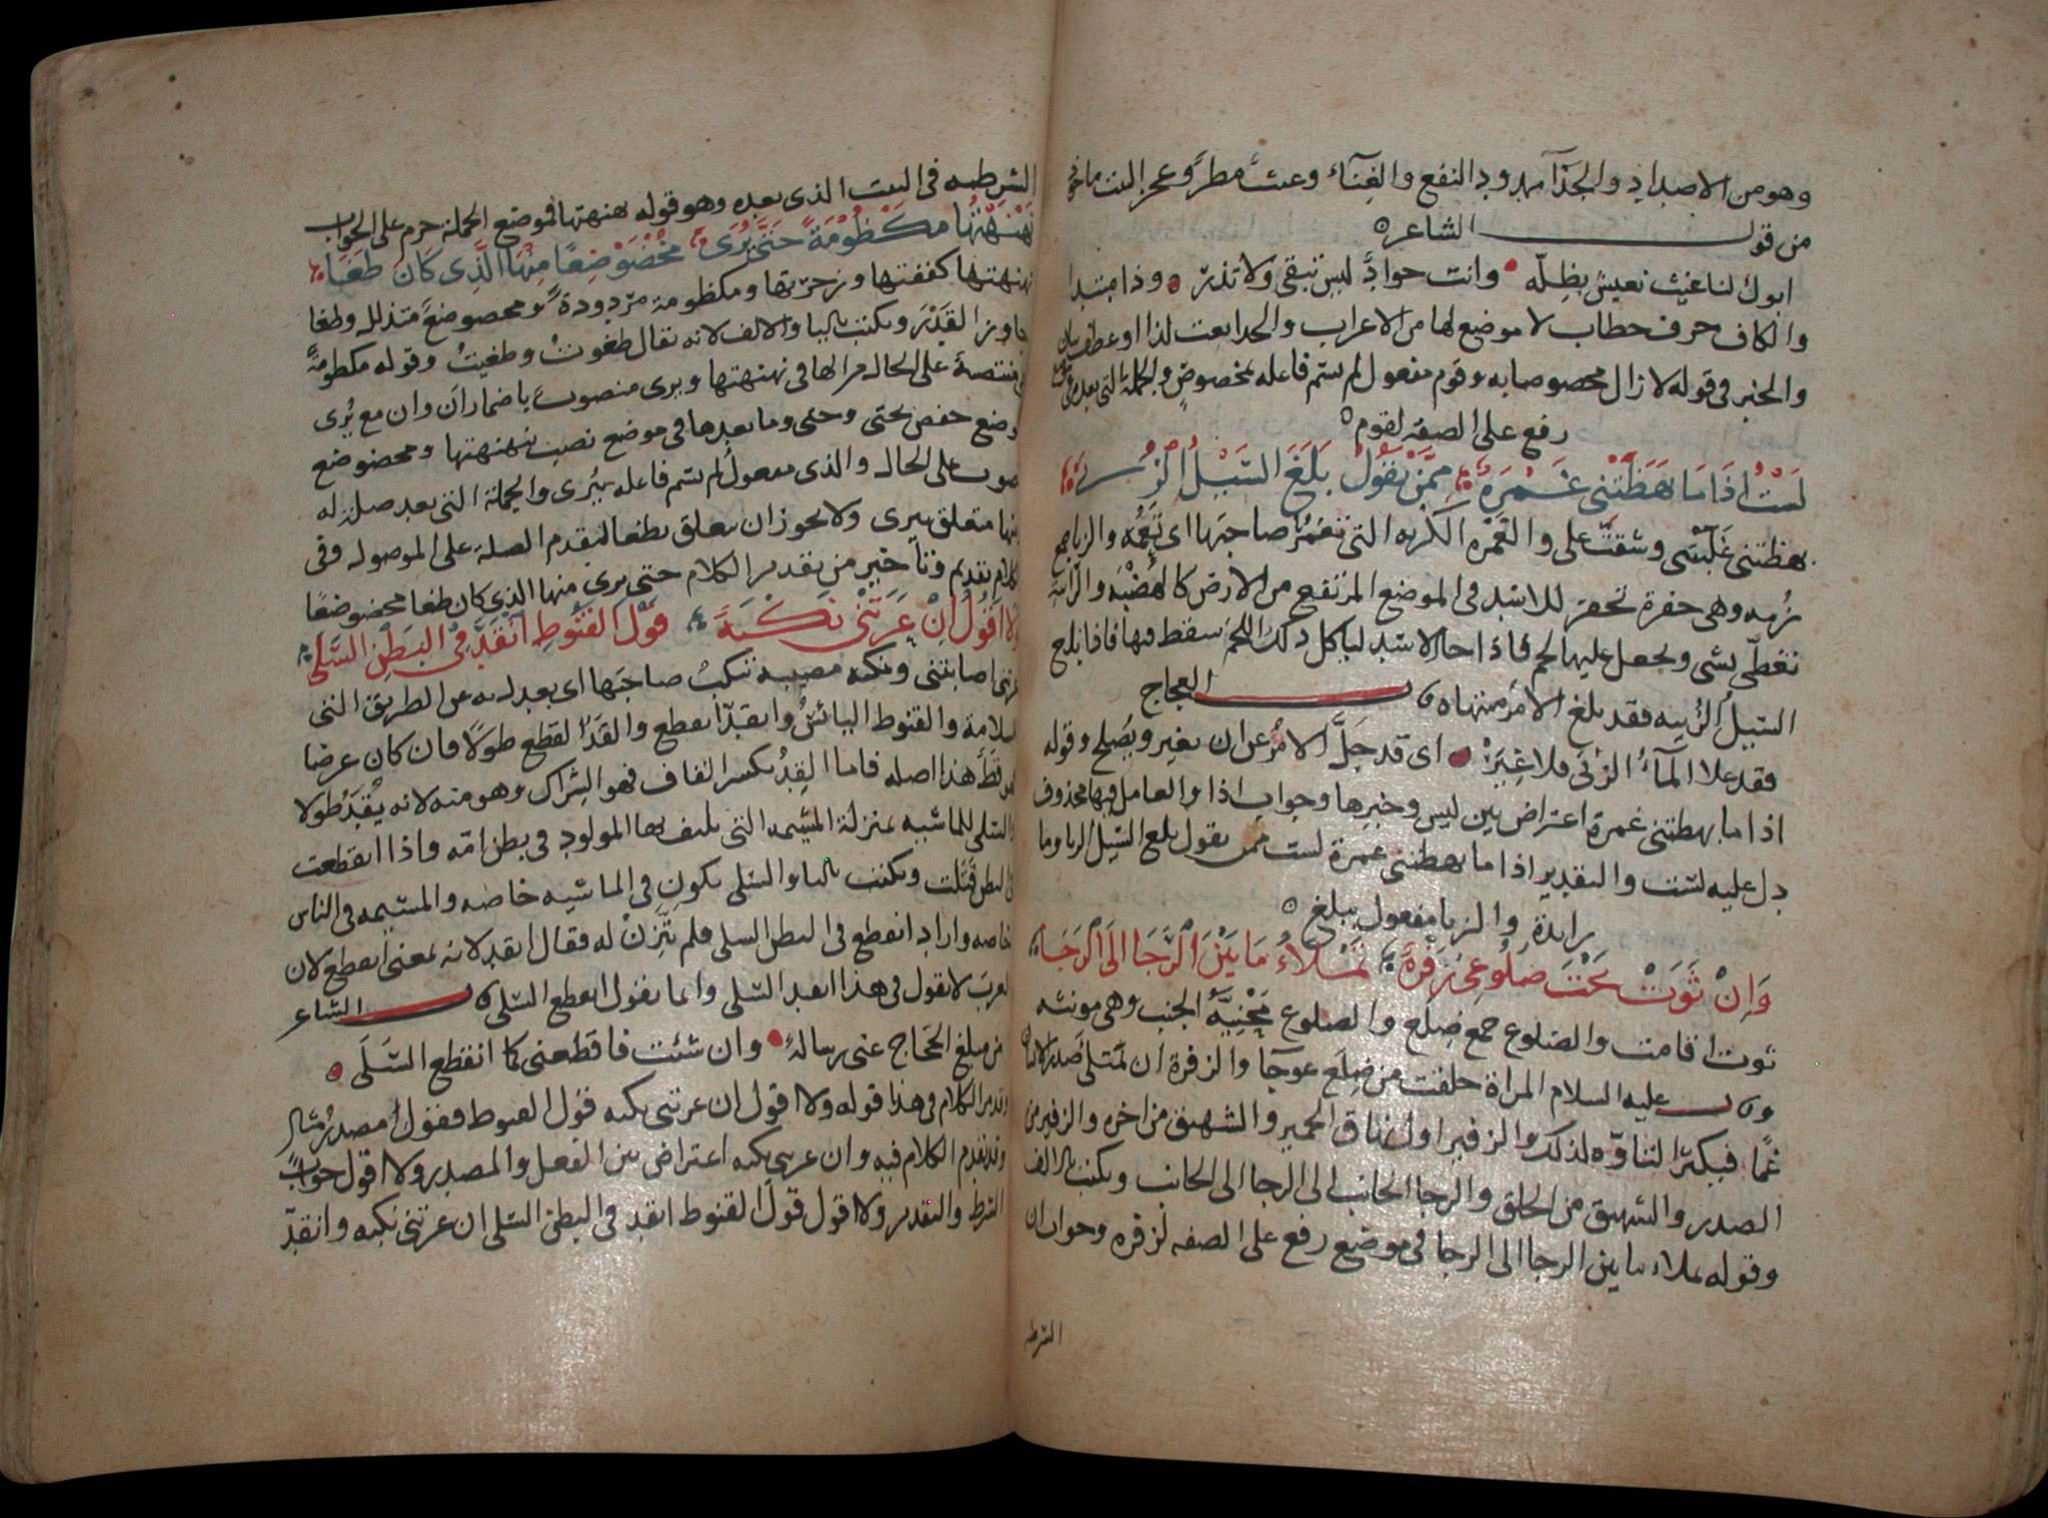 وهو من الاضداد والجدا مهدود النفع والغناء وغيث مطر وعجز البيت ماخوذ
من قول الشاعر
ابوك لنا غيث نعيش بظله وانت جواد ليس تبقى ولا تذر وذا مبتدا
والكاف حرف خطاب لا موضع لها من الاعراب والجدا نعت لذا او عطف بيان
والخبر فى قوله لا زال مخصوصا به وقوم مفعول لم يسم فاعله بمخصوص والجملة التى بعده فى موضع
رفع على الصفة لقوم
لَسْتُ اذَا مَا بَهَظَتْنى غَمْرَة مِمَّنْ يَقُولُ بَلَغَ السَّيْلُ الزُّبى
بهظتنى غلبتنى وشقت على والغمرة الكريهة التى تغمر صاحبها اى تعمه والزبا جمع
زبية وهى حفرة تحفر للاسد فى الموضع المرتفع من الارض كالهضبة والرابية
تغطى بشى ويجعل عليها لحم فاذا جا الاسد لياكل ذلك اللحم سقط فيها فاذا بلغ
السيل الزبية فقد بلغ الامر منتهاه قال العجاج
فقد علا الماء الزبى فلا غير اى قد جل الامر عن ان يغير ويصلح وقوله
اذا ما بهظتنى غمرة اعتراض بين ليس وخبرها وجواب اذا والعامل فيها محذوف
دل عليه لست والتقدير اذا ما بهظتنى غمرة لست ممن يقول بلغ السيل الزبا وما
زايدة والزبا مفعول ببلغ
وَاِنْ ثَوَتْ تَحْتَ ضُلُوعِى زَفْرَةٌ تَمْلاءُ مَا بَيْنَ الرَّجَا اِلَى الرَّجَا
ثوت اقامت والضلوع جمع ضلع والضلوع مَحْنِيَّة الجنب وهى مونثة
وقال عليه السلام المراة خلقت من ضلع عوجا والزفرة ان يمتلى صدر الانسان
غما فيكثر التاوه لذلك والزفير اول نهاق الحمير والشهيق من اخره والزفير من
الصدر والشهيق من الحلق والرجا الجانب الى الرجا الى الجانب ويكتب بالالف
وقوله تملاء ما بين الرجا الى الرجا فى موضع رفع على الصفه لزفره وجواب ان
الشرطيه
الشرطيه فى البيت الذى بعده وهو قوله نهنهتها فموضع الجملة جزم على الجواب
نَهْنَهْتُهَا مَكْظُوْمَةً حَتَّى يُرَى مُخْضَوْضِعًا مِنْهَا الَّذِى كَانَ طَغَا
نهنهتها كففتها وزجرتها ومكظومة مردودة ومخضوضع متذلل وطغا
جاوز القدر ويكتب باليا والالف لانه يقال طغوت وطغيت وقوله مكظومة
منتصبة على الحال من الها فى نهنهتها ويرى منصوب باضمار ان وان مع يُرى
موضع خفض بحتى وحتى وما بعدها فى موضع نصب بنهنهتها ومخضوضع
منصوب على الحال والذى مفعول لم يسم فاعله بيرى والجملة التى بعد صلة له
ومنها متعلق بيرى ولا يجوز ان يتعلق بطغا لتقدم الصلة على الموصول وفى
الكلام تقديم وتاخير من تقدير الكلام حتى يرى منها الذى كان طغا مخضوضعا
وَلا اَقُولُ اِنْ عَرَتْنِى نَكْبَةٌ قَوْلَ القَنُوطِ انْقَدَّ فِى البَطْنِ السَّلَى
عرتنى اصابتنى ونكبة مصيبه تنكب صاحبها اى يعدل به عن الطريق التى
السلامة والقنوط اليائس وانقد انقطع والقد القطع طولا فان كان عرضا
فهو قط هذا اصله فاما القد بكسر القاف فهو الشراك وهو منه لانه يقد طولا
والسلى للماشيه بمنزلة المشيمه التى يلتف بها المولود فى بطن امه واذا انقطعت
فى البطن قتلت ويكتب باليا والسلى يكون فى الماشيه خاصه والمشيمه فى الناس
خاصه واراد انقطع فى البطن السلى فلم يتزن له فقال انقد لانه بمعنى انقطع لان
العرب لا تقول فى هذا انقد السلى وانما تقول انقطع السلى قال الشاعر
من مبلغ الحجاج عنى رسالة وان شئت فاقطعنى كما انقطع السَّلَى
وتقدير الكلام فى هذا قوله ولا اقول ان عرتنى نكبه قول القنوط فقول مصدر مثال
وقد تقدم الكلام فيه وان عرتنى نكبه اعتراض بين الفعل والمصدر ولا اقول جواب
الشرط والتقدير ولا اقول قول القنوط انقد فى البطن السلى ان عرتنى نكبه وانقد